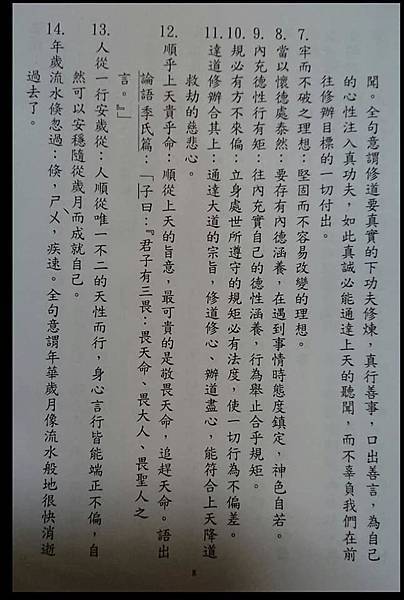 聞。全句意謂修道要真實的下功夫修煉，真行善事，口出善言，為自己
的心性注入真功夫，如此真誠必能通達上天的聽聞，而不辜負我們在前
往修辦目標的一切付出。
7. 牢而不破之理想：堅固而不容易改變的理想。
8. 當以懷德處泰然：要存有內德涵養，在遇到事情時態度鎮定，神色自若。
9. 內充德性行有矩：往內充實自己的德性涵養，行為舉止合乎規矩。
10. 規必有方不來偏：立身處世所遵守的規矩必有法度，使一切行為不偏差。
11. 達道修辦合其上：通達大道的宗旨，修道修心、辦道盡心，能符合上天降道
救劫的慈悲心。
12. 順乎上天貴乎命：順從上天的旨意，最可貴的是敬畏天命，追趕天命。語出
論語季氏篇：「子曰：『君子有三畏：畏天命、畏大人、畏聖人之
言。』」
13. 人從一行安歲從：人順從唯一不二的天性而行，身心言行皆能端正不偏，自
然可以安穩隨從歲月而成就自己。
14. 年歲流水倏忽過：倏，ㄕㄨˋ，疾速。全句意謂年華歲月像流水般地很快消逝
過去了。
8